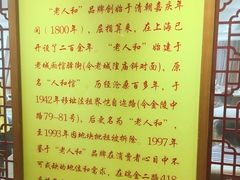 “老人和”品牌创始于清朝嘉庆年
间(1800年)，屈指算来，在上海已
开设了二百余年。“老人和”始建于
老城厢馆驿街(今老城隍庙斜对面)，原
名“人和馆”历经沧桑百多年，于
1942年移址法租界恺自迩路(今金陵中
路79-81号)，后更名为“老人和”，
至1993年因地块批租被拆除。1997年
鉴于“老人和”品牌在消费者心目中不
可或缺的地位和需求，在瑞金二路418